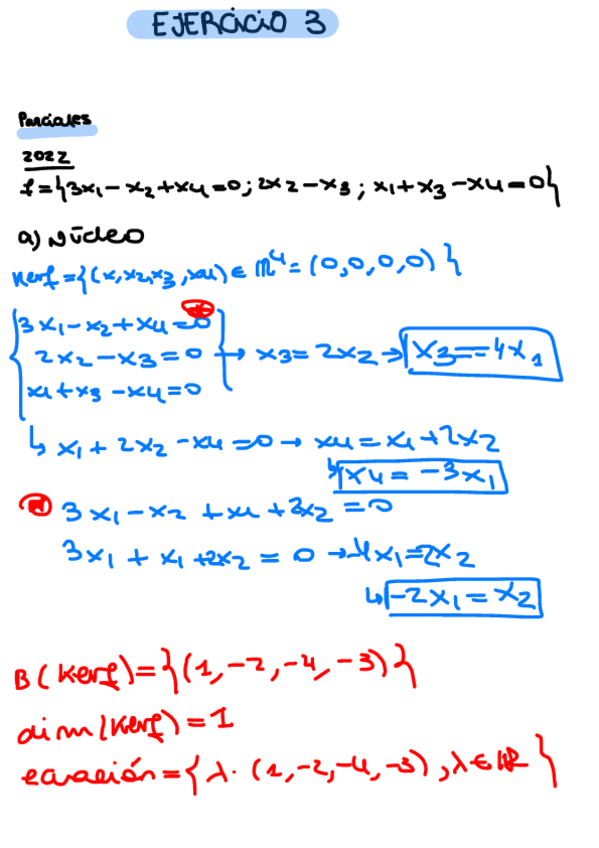 EJERCICIO 3
Parciales
2022
f={3x₁-x₂+x4=0; 2x₂-x₃; x₁+x₃-x4=0}
a) Núcleo
Kerf={(x,x₂,x₃,x4)∈ℝ⁴=(0,0,0,0)}
3x₁-x₂+x4=0
2x₂-x₃=0 → x₃=2x₂ → x₃=-4x₁
x₁+x₃-x4=0
↳ x₁+2x₂-x4=0 → x4=x₁+2x₂
↳ x4=-3x₁
3x₁-x₂+x₁+2x₂=0
3x₁+x₁+2x₂=0 → 4x₁=2x₂
↳ -2x₁=x₂
B(Kerf)={(1,-2,-4,-3)}
dim(Kerf)=1
ecuación={λ·(1,-2,-4,-3),λ∈ℝ}